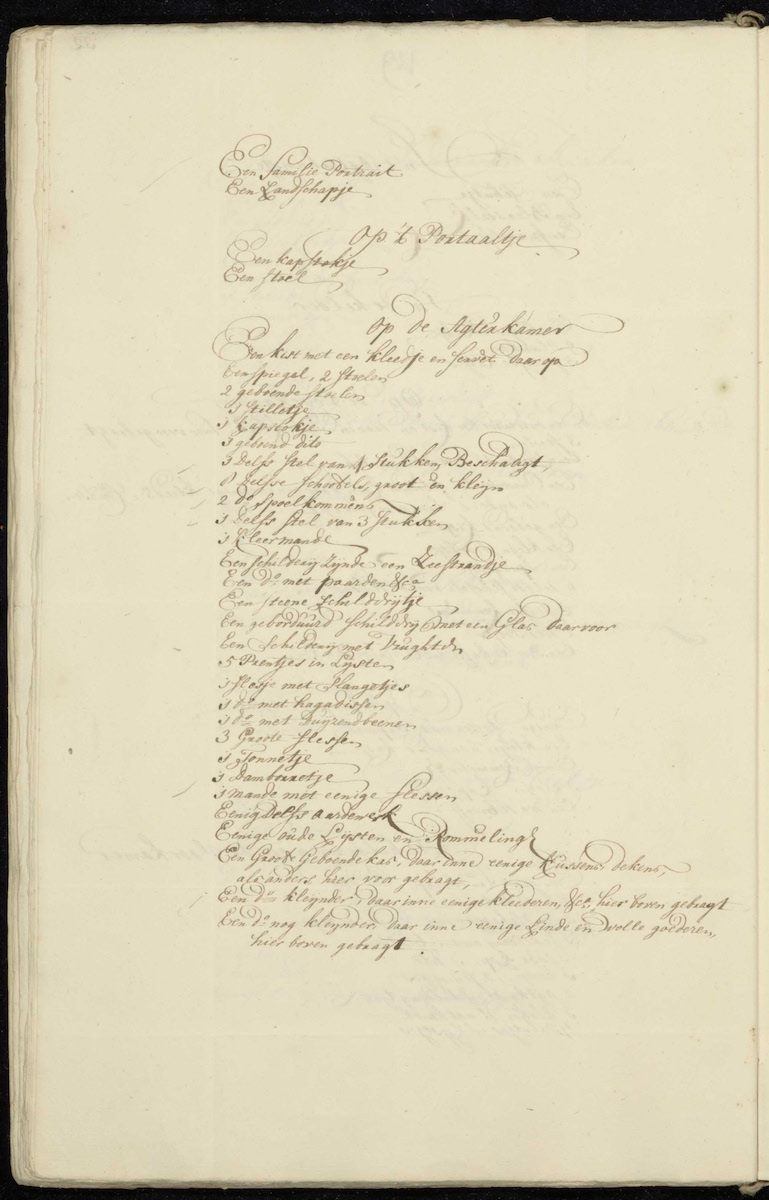 Een familie Portrait
Een Landschapje
Op 't Portaaltje
Een kapstokje
Een stoel
Op de Agterkamer
Een kist met een kleedje en servet daar op
Een spiegel, 2 stoelen
2 geboende stoelen
1 Stilletje
1 Kapstokje
1 geboend dito
3 Delfs stel van 4 Stukken, Beschadigt,
8 Delfse schootels, groot en kleyn
2 do Spoelkommens
1 Delfs stel van 3 Stukken
1 Kleermande
Een schilderij zijnde een Zeestrandje
Een do met paarden &ca
Een steene Schilddrijtje
Een geborduurd Schilddrij met een Glas daar voor
Een Schilderij met Vrughten
5 Prentjes in Lijsten
1 flesje met Slangetjes
1 do met hagadissen
1 do met Duijzendbeenen
3 Groote flessen
1 Tonnetje
1 Damborretje
1 mande met eenige flessen
Eenig Delfs aardewerk
Eenige oude Lijsten en Rommeling
Een Groote Geboende kas, daar inne eenige Kussens dekens,
als anders hier voor gebragt,
Een do kleynder, daar inne eenige kleederen, &ca, hier boven gebragt
Een do nog kleynder, daar inne eenige Linde en wolle goederen,
hier boven gebragt.